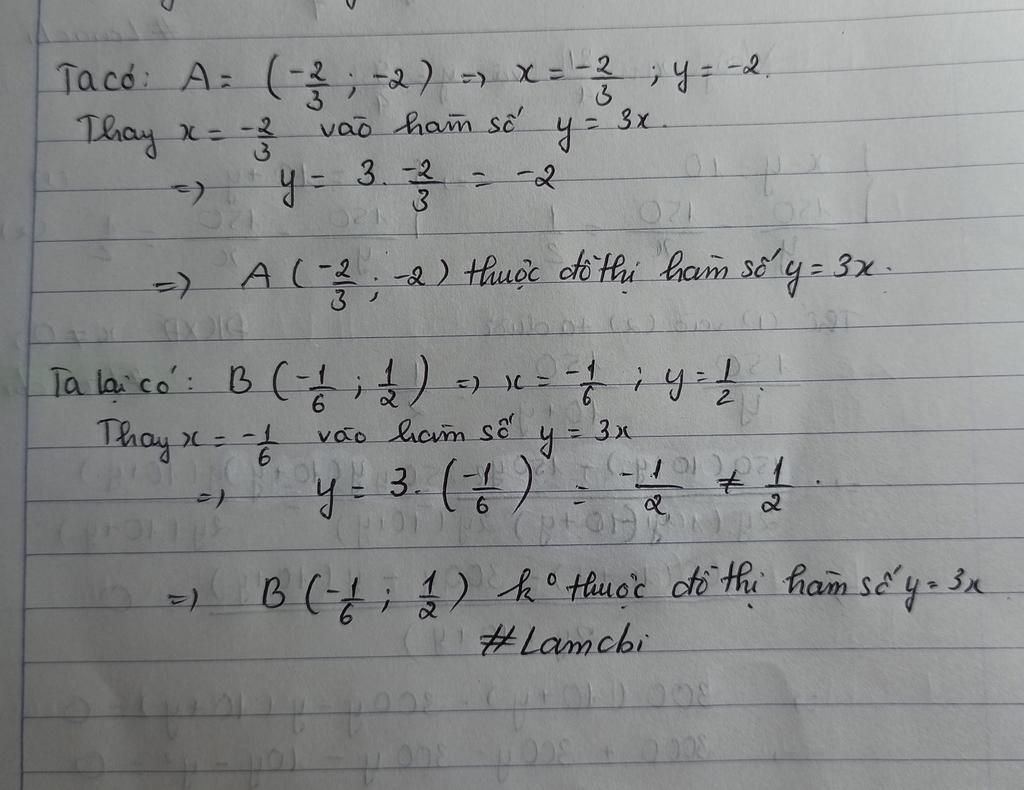 Ta có: A = (-2/3 ; -2) => x = -2/3 ; y = -2.
Thay x = -2/3 vào hàm số y = 3x.
=> y = 3. -2/3 = -2
=> A (-2/3 ; -2) thuộc đồ thị hàm số y = 3x.
Ta lại có: B (-1/6 ; 1/2) => x = -1/6 ; y = 1/2.
Thay x = -1/6 vào hàm số y = 3x
=> y = 3. (-1/6) = -1/2 ≠ 1/2.
=> B (-1/6 ; 1/2) k° thuộc đồ thị hàm số y = 3x
#Lamchi